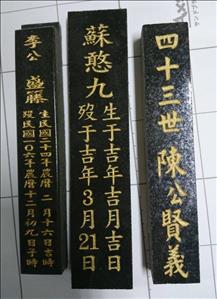 四十三世陳公賢義
蘇憨九
生于吉年吉月吉日
歿于吉年3月21日
李公
盛籐
生民國二十四年農曆二月十六日吉時
歿民國一〇六年農曆十二月初九日子時